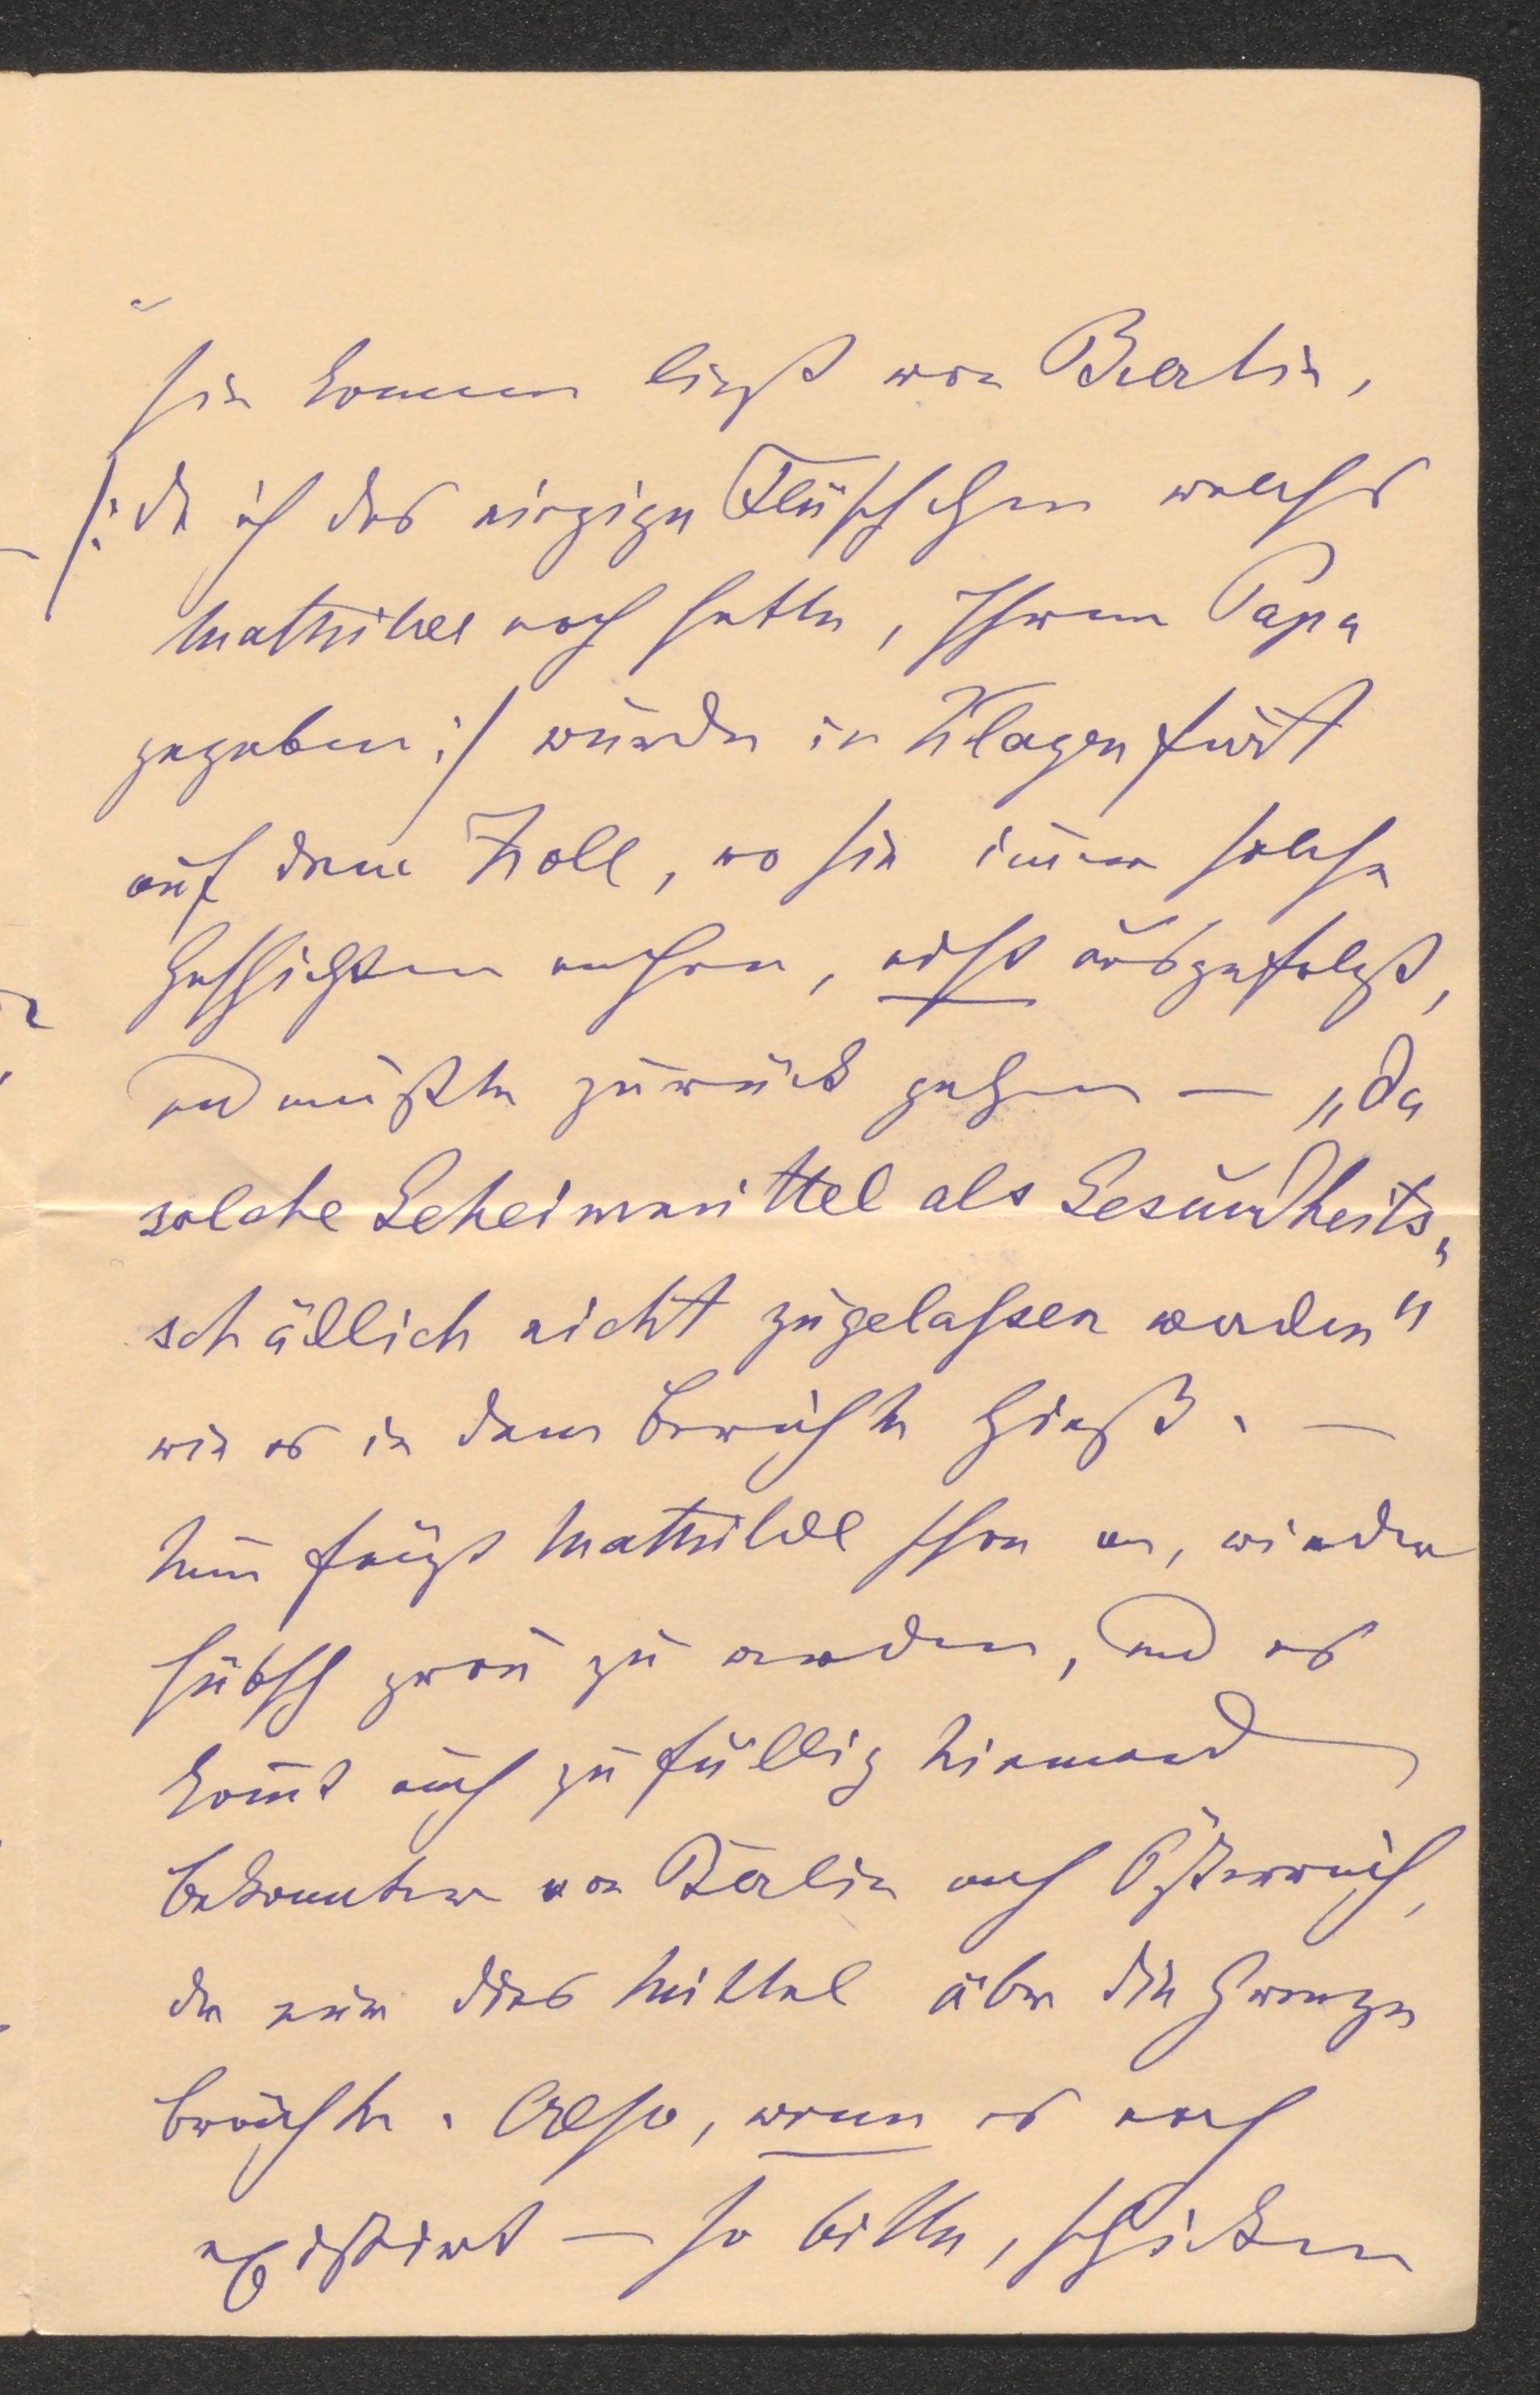 sie kommen ließ von Berlin,
/: da ich das einzige Fläschchen welches
Mathilde noch hatte, Ihrem Papa
gegeben :/ wurde in Klagenfurt
auf dem Zoll, wo sie immer solche
Geschichten machen, nicht ausgefolgt,
und mußte zurück gehen — „da
solche Geheimmittel als Gesundheits„
schädlich nicht zugelassen werden"
wie es in dem Berichte hieß. —
Nun fängt Mathilde schon an, wieder
hübsch grau zu werden, und es
kom̄t auch zufällig Niemand
bekannter von Berlin nach Österreich,
der mir dies Mittel über die Grenze
brächte. Also, wenn es noch
existirt — so bitte, schicken